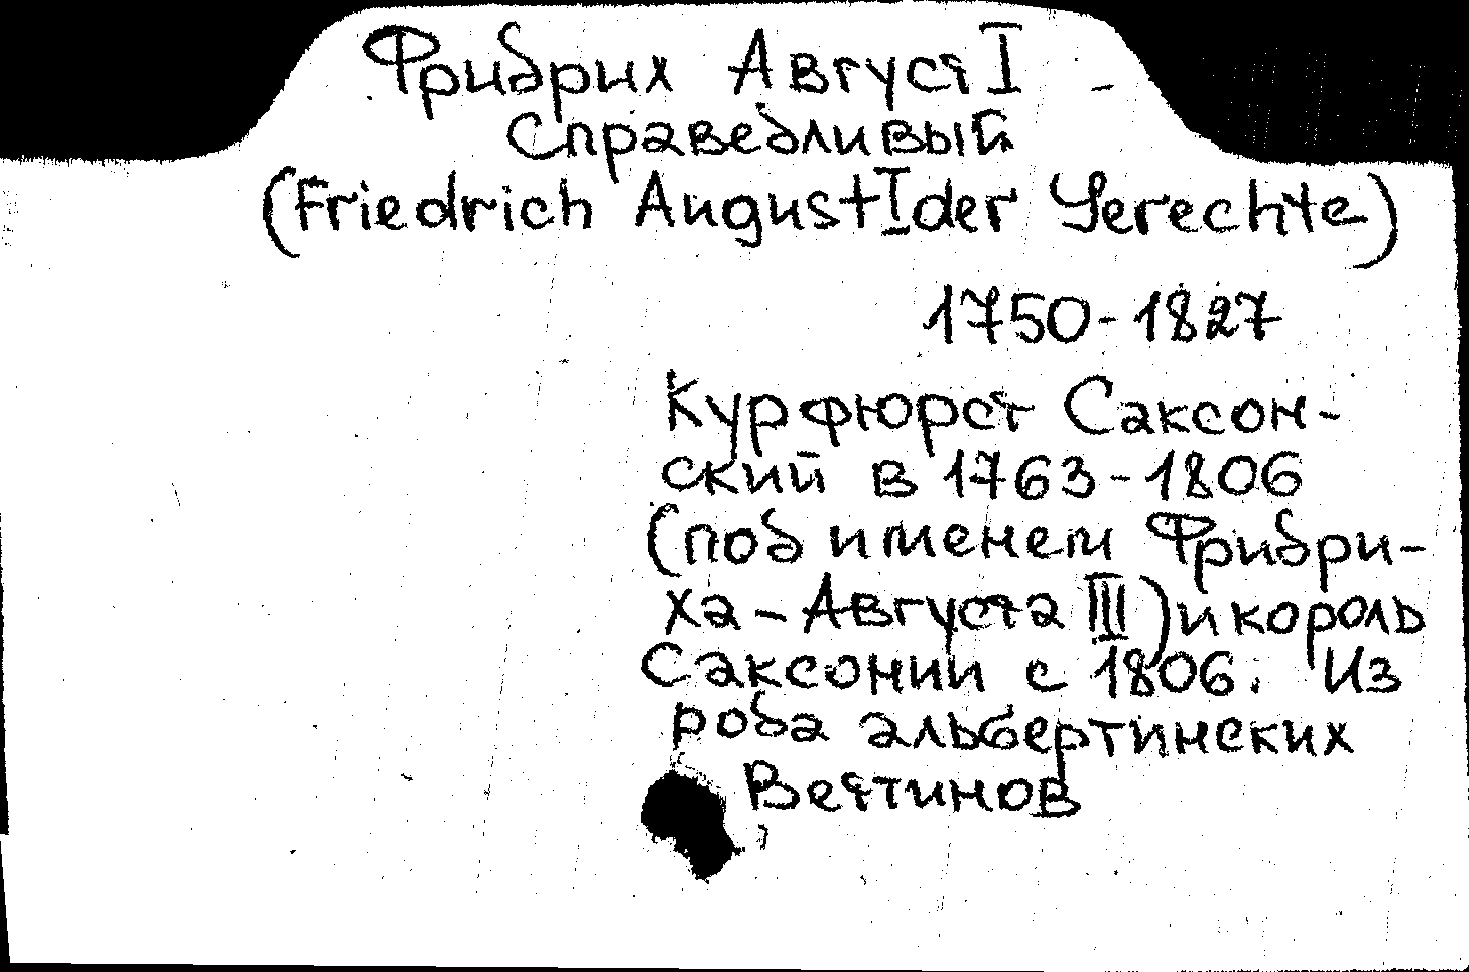 Фридрих Август I -
Справедливый
(Friedrich August I der Gerechte)
1750-1827
Курфюрст Саксон-
ский в 1763-1806
(под именем Фридри-
ха-Августа III) и король
Саксонии с 1806. Из
рода альбертинских
Веттинов